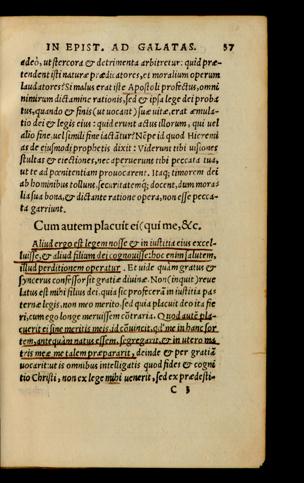 IN EPIST. AD GALATAS. 37
adeò, ut stercora & detrimenta arbitretur: quid præ-
tendent isti naturæ prædicatores, et moralium operum
laudatores? Si malus erat iste Apostoli profectus, omni
nimirum dictamine rationis, sed & ipsa lege dei proba
tus, quando & finis (ut uocant) suæ uitæ, erat æmula-
tio dei & legis eius: quid erunt actus illorum, qui uel
alio fine, uel simili fine iactãtur? Nẽpe id quod Hieremi
as de eiusmodi prophetis dixit: Viderunt tibi uisiones
stultas & eiectiones, nec aperuerunt tibi peccata tua,
ut te ad pœnitentiam prouocarent. Itaq; timorem dei
ab hominibus tollunt, securitatemq́; docent, dum mora-
lia sua bona, & dictante ratione opera, non esse pecca-
ta garriunt.
Cum autem placuit ei (qui me, &c.
Aliud ergo est legem nosse & in iustitia eius excel-
luisse, & aliud filium dei cognouisse: hoc enim salutem,
illud perditionem operatur. Et uide quàm gratus &
syncerus confessor sit gratiæ diuinæ. Non (inquit) reue
latus est mihi filius dei, quia sic profeceram in iustitia pa
ternæ legis, non meo merito, sed quia placuit deo ita fie
ri, cum ego longe meruissem cõtraria. Quod autẽ pla-
cuerit ei sine meritis meis, id cõuincit, qd́ me in hanc sor
tem, antequàm natus essem, segregarit, & in utero ma
tris meæ me talem præpararit, deinde & per gratiã
uocarit: ut is omnibus intelligatis quod fides & cogni
tio Christi, non ex lege mihi uenerit, sed ex prædesti-
C 3